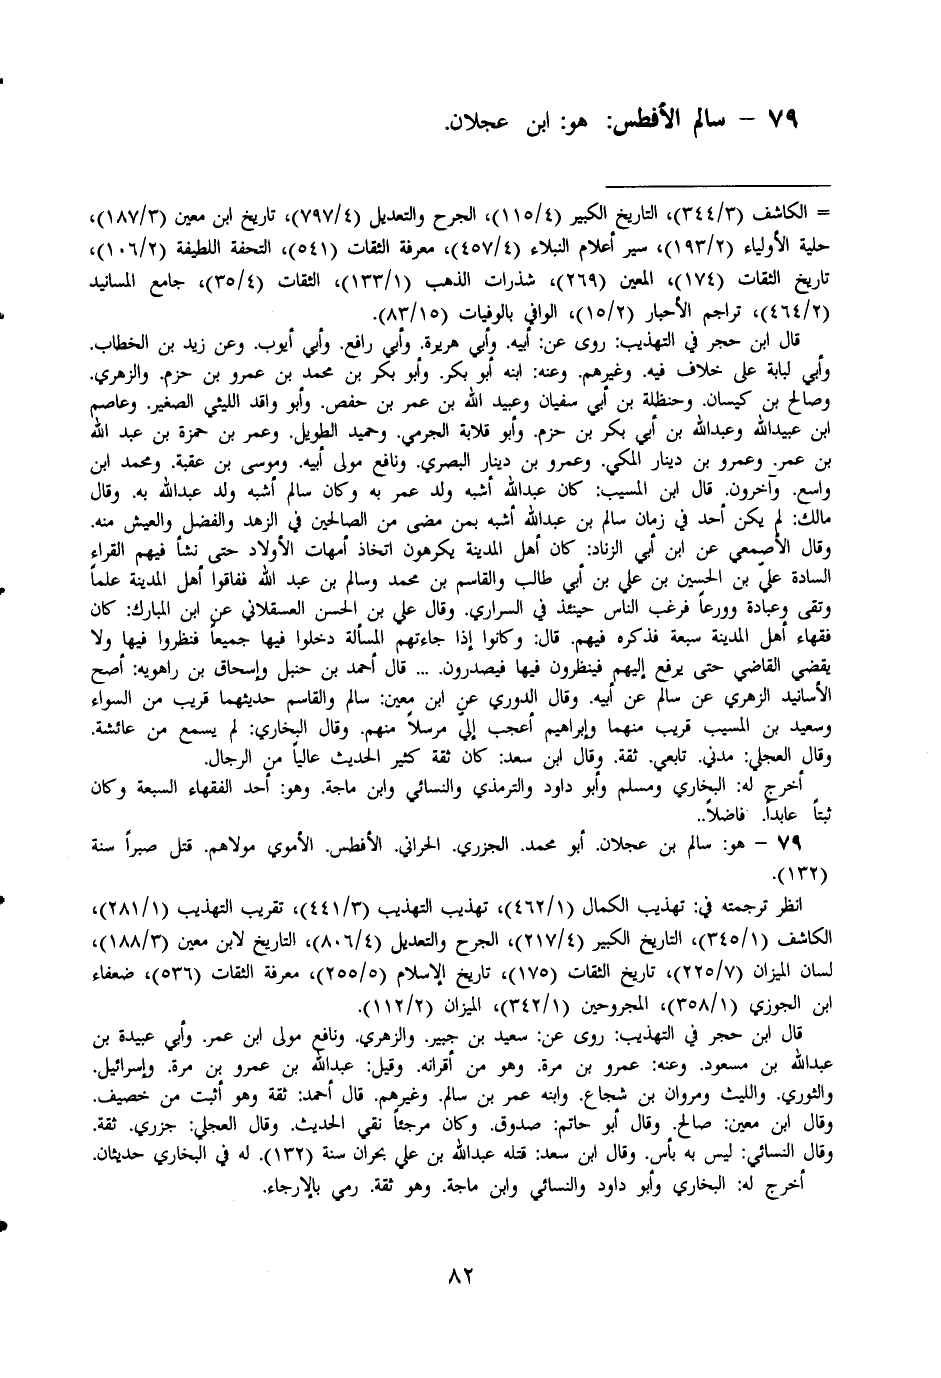 ٧٩ – سالم الأفطس: هو: ابن عجلان.
= الكاشف (٣٤٤/٣)، التاريخ الكبير (١١٥/٤)، الجرح والتعديل (٧٩٧/٤)، تاريخ ابن معين (١٨٧/٣)،
حلية الأولياء (١٩٣/٢)، سير أعلام النبلاء (٤٥٧/٤)، معرفة الثقات (٥٤١)، التحفة اللطيفة (١٠٦/٢)،
تاريخ الثقات (١٧٤)، المعين (٢٦٩)، شذرات الذهب (١٣٣/١)، الثقات (٣٥/٤)، جامع المسانيد
(٤٦٤/٢)، تراجم الأحبار (١٥/٢)، الوافي بالوفيات (٨٣/١٥).
قال ابن حجر في التهذيب: روى عن: أبيه. وأبي هريرة. وأبي رافع. وأبي أيوب. وعن زيد بن الخطاب.
وأبي لبابة على خلاف فيه. وغيرهم. وعنه: ابنه أبو بكر. وأبو بكر بن محمد بن عمرو بن حزم. والزهري.
وصالح بن كيسان. وحنظلة بن أبي سفيان وعبيد الله بن عمر بن حفص. وأبو واقد الليثي الصغير. وعاصم
ابن عبيدالله وعبدالله بن أبي بكر بن حزم. وأبو قلابة الجرمي. وحميد الطويل. وعمر بن حمزة بن عبد الله
بن عمر. وعمرو بن دينار المكي. وعمرو بن دينار البصري. ونافع مولى أبيه. وموسى بن عقبة. ومحمد ابن
واسع. وآخرون. قال ابن المسيب: كان عبدالله أشبه ولد عمر به وكان سالم أشبه ولد عبدالله به. وقال
مالك: لم يكن أحد في زمان سالم بن عبدالله أشبه بمن مضى من الصالحين في الزهد والفضل والعيش منه.
وقال الأصمعي عن ابن أبي الزناد: كان أهل المدينة يكرهون اتخاذ أمهات الأولاد حتى نشأ فيهم القراء
السادة عليّ بن الحسين بن علي بن أبي طالب والقاسم بن محمد وسالم بن عبد الله ففاقوا أهل المدينة علماً
وتقى وعبادة وورعاً فرغب الناس حينئذ في السراري. وقال علي بن الحسن العسقلاني عن ابن المبارك: كان
فقهاء أهل المدينة سبعة فذكره فيهم. قال: وكانوا إذا جاءتهم المسألة دخلوا فيها جميعاً فنظروا فيها ولا
يقضي القاضي حتى يرفع إليهم فينظرون فيها فيصدرون. ... قال أحمد بن حنبل وإسحاق بن راهويه: أصح
الأسانيد الزهري عن سالم عن أبيه. وقال الدوري عن ابن معين: سالم والقاسم حديثهما قريب من السواء
وسعيد بن المسيب قريب منهما وإبراهيم أعجب إليّ مرسلاً منهم. وقال البخاري: لم يسمع من عائشة.
وقال العجلي: مدني. تابعي. ثقة. وقال ابن سعد: كان ثقة كثير الحديث عالياً من الرجال.
أخرج له: البخاري ومسلم وأبو داود والترمذي والنسائي وابن ماجة. وهو: أحد الفقهاء السبعة وكان
ثبتاً عابداً. فاضلاً..
٧٩ – هو: سالم بن عجلان. أبو محمد. الجزري. الحراني. الأفطس. الأموي مولاهم. قتل صبراً سنة
(١٣٢).
انظر ترجمته في: تهذيب الكمال (٤٦٢/١)، تهذيب التهذيب (٤٤١/٣)، تقريب التهذيب (٢٨١/١)،
الكاشف (٣٤٥/١)، التاريخ الكبير (٢١٧/٤)، الجرح والتعديل (٨٠٦/٤)، التاريخ لابن معين (١٨٨/٣)،
لسان الميزان (٢٢٥/٧)، تاريخ الثقات (١٧٥)، تاريخ الإسلام (٢٥٥/٥)، معرفة الثقات (٥٣٦)، ضعفاء
ابن الجوزي (٣٥٨/١)، المجروحين (٣٤٢/١)، الميزان (١١٢/٢).
قال ابن حجر في التهذيب: روى عن: سعيد بن جبير. والزهري. ونافع مولى ابن عمر. وأبي عبيدة بن
عبدالله بن مسعود. وعنه: عمرو بن مرة. وهو من أقرانه. وقيل: عبدالله بن عمرو بن مرة. وإسرائيل.
والثوري. والليث ومروان بن شجاع. وابنه عمر بن سالم. وغيرهم. قال أحمد: ثقة وهو أثبت من خصيف.
وقال ابن معين: صالح. وقال أبو حاتم: صدوق. وكان مرجئاً نقي الحديث. وقال العجلي: جزري. ثقة.
وقال النسائي: ليس به بأس. وقال ابن سعد: قتله عبدالله بن علي بحران سنة (١٣٢). له في البخاري حديثان.
أخرج له: البخاري وأبو داود والنسائي وابن ماجة. وهو ثقة. رمي بالإرجاء.
٨٢